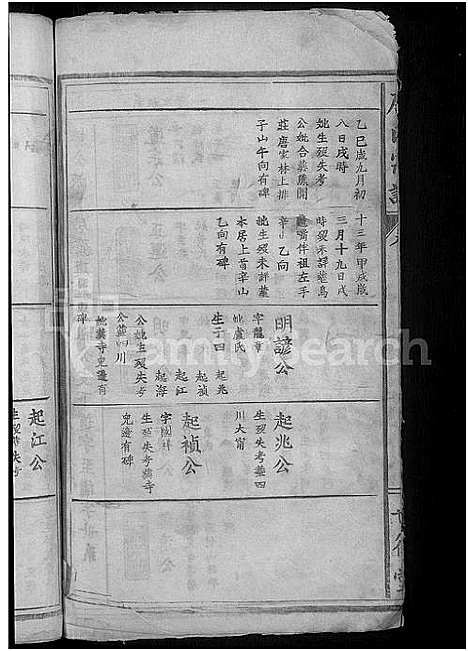 乙巳歲九月初
八日戌時
妣生歿失考
公妣合葬原開
莊唐家林上排
子山午向有碑
十三年甲戌歲
三月十九日戌
時歿未詳葬烏
嘴伴祖左手
辛乙向
妣生歿未詳葬
本居上首辛山
乙向有碑
明諺公
字龍章
妣盧氏
生子四
起兆
起禎
起江
起海
公妣生歿失考
公葬四川
妣葬寺兒邊有
碑
起兆公
生歿失考葬四
川大甯
起禎公
字國祥
生歿失考葬寺
兒邊有碑
起江公
生歿失考
FamilySearch